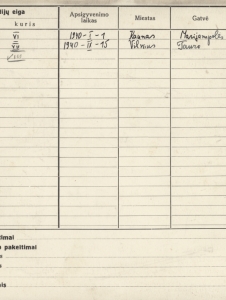 ijų eiga
kuris
Apsigyvenimo laikas
Miestas
Gatvė
VI 1940-I-1 Kaunas Marijampolės
VII 1940-II-15 Vilnius Tauro
VIII
timai
o pakeitimai
s
nis